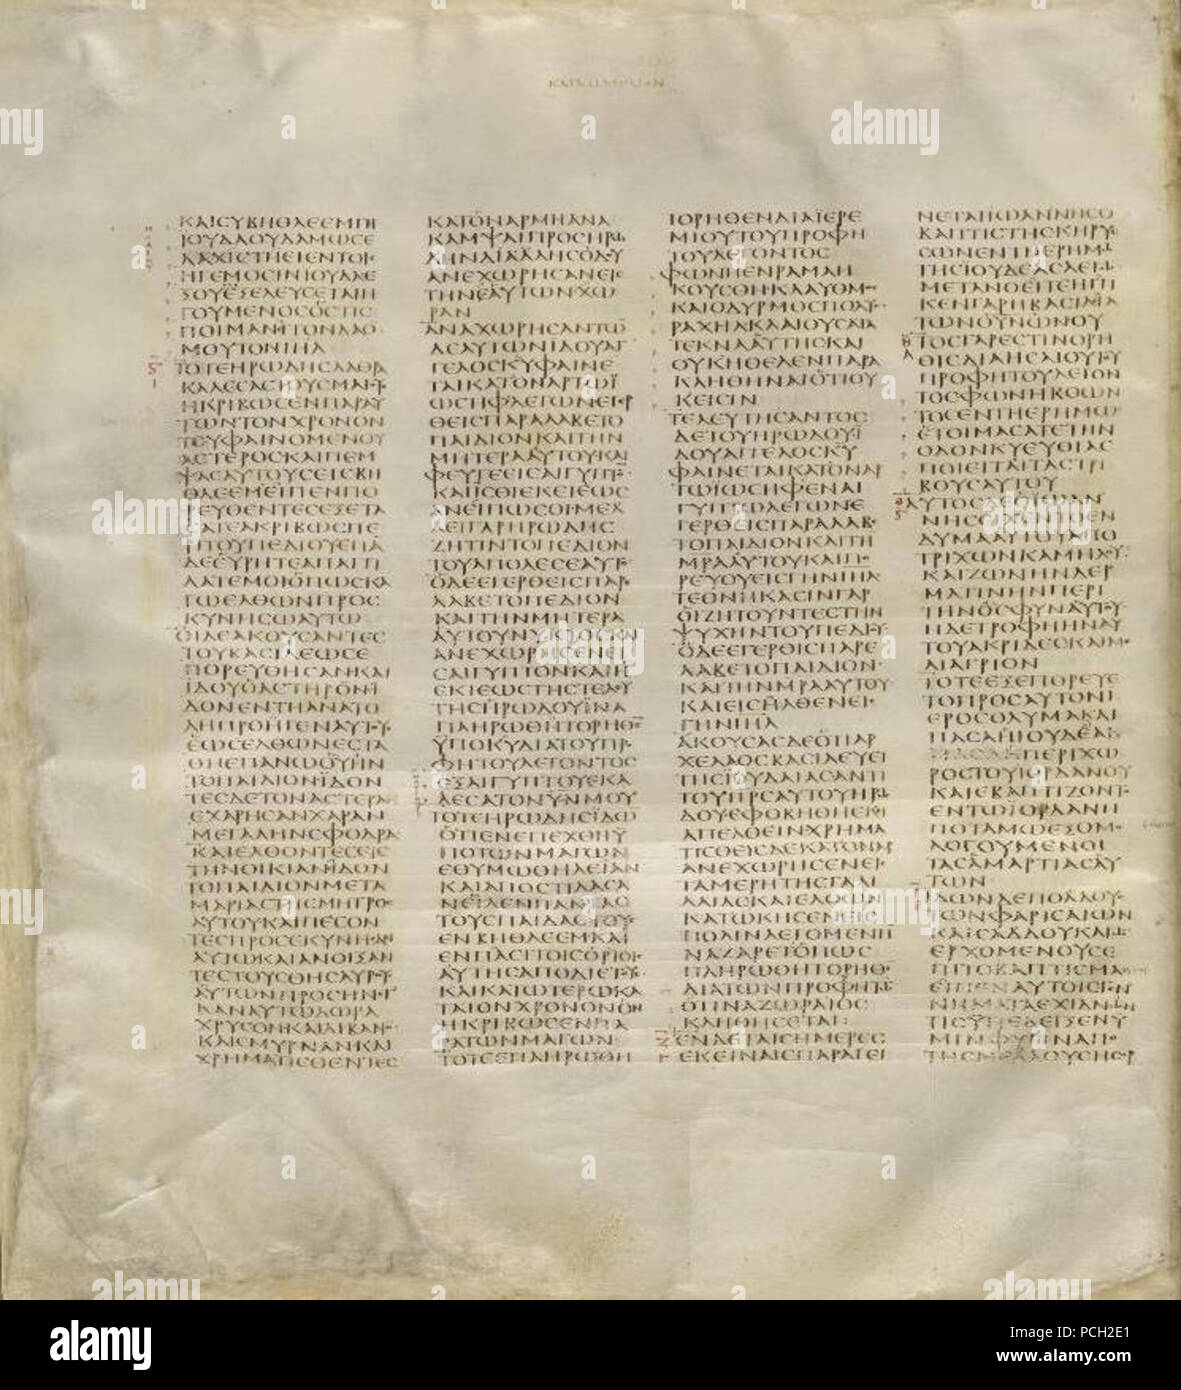 ΚΑΤΑ ΜΑΘΘΑΙΟΝ
ΚΑΙ ΣΥ ΒΗΘΛΕΕΜ ΓΗ
ΙΟΥΔΑ ΟΥΔΑΜΩΣ Ε
ΛΑΧΙΣΤΗ ΕΙ ΕΝ ΤΟΙΣ
ΗΓΕΜΟΣΙΝ ΙΟΥΔΑ Ε
ΣΟΥ ΕΞΕΛΕΥΣΕΤΑΙ Η
ΓΟΥΜΕΝΟΣ ΟΣΤΙΣ
ΠΟΙΜΑΝΙ ΤΟΝ ΛΑΟ
ΜΟΥ ΤΟΝ ΙΗΛ
ΤΟΤΕ ΗΡΩΔΗΣ ΛΑΘΡΑ
ΚΑΛΕΣΑΣ ΤΟΥΣ ΜΑΓΟΥΣ
ΗΚΡΙΒΩΣΕΝ ΠΑΡ ΑΥ
ΤΩΝ ΤΟΝ ΧΡΟΝΟΝ
ΤΟΥ ΦΑΙΝΟΜΕΝΟΥ
ΑΣΤΕΡΟΣ ΚΑΙ ΠΕΜ
ΨΑΣ ΑΥΤΟΥΣ ΕΙΣ ΒΗ
ΘΛΕΕΜ ΕΙΠΕΝ ΠΟ
ΡΕΥΘΕΝΤΕΣ ΕΞΕΤΑ
ΣΑΤΕ ΑΚΡΙΒΩΣ ΠΕ
ΡΙ ΤΟΥ ΠΕΔΙΟΥ ΕΠΑ
ΔΕ ΕΥΡΗΤΕ ΑΠΑΓΓΙ
ΛΑΤΕ ΜΟΙ ΟΠΩΣ ΚΑ
ΓΩ ΕΛΘΩΝ ΠΡΟΣ
ΚΥΝΗΣΩ ΑΥΤΩ
ΟΙ ΔΕ ΑΚΟΥΣΑΝΤΕΣ
ΤΟΥ ΒΑΣΙΛΕΩΣ Ε
ΠΟΡΕΥΘΗΣΑΝ ΚΑΙ
ΙΔΟΥ Ο ΑΣΤΗΡ ΟΝ ΕΙ
ΔΟΝ ΕΝ ΤΗ ΑΝΑΤΟ
ΛΗ ΠΡΟΗΓΕΝ ΑΥΤΟΥΣ
ΕΩΣ ΕΛΘΩΝ ΕΣΤΑ
ΘΗ ΕΠΑΝΩ ΟΥ ΗΝ
ΤΟ ΠΑΙΔΙΟΝ ΙΔΟΝ
ΤΕΣ ΔΕ ΤΟΝ ΑΣΤΕΡΑ
ΕΧΑΡΗΣΑΝ ΧΑΡΑΝ
ΜΕΓΑΛΗΝ ΣΦΟΔΡΑ
ΚΑΙ ΕΛΘΟΝΤΕΣ ΕΙΣ
ΤΗΝ ΟΙΚΙΑΝ ΙΔΟΝ
ΤΟ ΠΑΙΔΙΟΝ ΜΕΤΑ
ΜΑΡΙΑΣ ΤΗΣ ΜΗΤΡΟΣ
ΑΥΤΟΥ ΚΑΙ ΠΕΣΟΝ
ΤΕΣ ΠΡΟΣΕΚΥΝΗΣΑΝ
ΑΥΤΩ ΚΑΙ ΑΝΟΙΞΑΝ
ΤΕΣ ΤΟΥΣ ΘΗΣΑΥΡΟΥΣ
ΑΥΤΩΝ ΠΡΟΣΗΝΕΓ
ΚΑΝ ΑΥΤΩ ΔΩΡΑ
ΧΡΥΣΟΝ ΚΑΙ ΛΙΒΑΝΟΝ
ΚΑΙ ΣΜΥΡΝΑΝ ΚΑΙ
ΧΡΗΜΑΤΙΣΘΕΝΤΕΣ
ΚΑΤ ΟΝΑΡ ΜΗ ΑΝΑ
ΚΑΜΨΑΙ ΠΡΟΣ ΗΡΩ
ΔΗΝ ΔΙ ΑΛΛΗΣ ΟΔΟΥ
ΑΝΕΧΩΡΗΣΑΝ ΕΙΣ
ΤΗΝ ΕΑΥΤΩΝ ΧΩ
ΡΑΝ
ΑΝΑΧΩΡΗΣΑΝΤΩ
Δ ΑΥΤΩΝ ΙΔΟΥ ΑΓ
ΓΕΛΟΣ ΚΥ ΦΑΙΝΕ
ΤΑΙ ΚΑΤ ΟΝΑΡ ΤΩ Ι
ΩΣΗΦ ΛΕΓΩΝ ΕΓΕΡ
ΘΕΙΣ ΠΑΡΑΛΑΒΕ ΤΟ
ΠΑΙΔΙΟΝ ΚΑΙ ΤΗΝ
ΜΗΤΕΡΑ ΑΥΤΟΥ ΚΑΙ
ΦΕΥΓΕ ΕΙΣ ΑΙΓΥΠΤΟΝ
ΚΑΙ ΙΣΘΙ ΕΚΕΙ ΕΩΣ
ΑΝ ΕΙΠΩ ΣΟΙ ΜΕΛ
ΛΕΙ ΓΑΡ ΗΡΩΔΗΣ
ΖΗΤΙΝ ΤΟ ΠΕΔΙΟΝ
ΤΟΥ ΑΠΟΛΕΣΕ ΑΥΤΟ
Ο ΔΕ ΕΓΕΡΘΕΙΣ ΠΑΡΕ
ΛΑΒΕ ΤΟ ΠΕΔΙΟΝ
ΚΑΙ ΤΗΝ ΜΗΤΕΡΑ
ΑΥΤΟΥ ΝΥΚΤΟΣ ΚΑΙ
ΑΝΕΧΩΡΗΣΕΝ ΕΙ
Σ ΑΙΓΥΠΤΟΝ ΚΑΙ Η
Ε ΚΙ ΕΩΣ ΤΗΣ ΤΕΛΕΥ
ΤΗΣ ΗΡΩΔΟΥ ΙΝΑ
ΠΛΗΡΩΘΗ ΤΟ ΡΗΘΕ
ΥΠΟ ΚΥ ΔΙΑ ΤΟΥ ΠΡΟ
ΦΗΤΟΥ ΛΕΓΟΝΤΟΣ
ΕΞ ΑΙΓΥΠΤΟΥ ΕΚΑ
ΛΕΣΑ ΤΟΝ ΥΝ ΜΟΥ
ΤΟΤΕ ΗΡΩΔΗΣ ΙΔΩ
ΟΤΙ ΕΝΕΠΕΧΘΗ Υ
ΠΟ ΤΩΝ ΜΑΓΩΝ
ΕΘΥΜΩΘΗ ΛΕΙΑΝ
ΚΑΙ ΑΠΟΣΤΙΛΑΣ Α
ΝΕΙΛΕΝ ΠΑΝΤΑΣ
ΤΟΥΣ ΠΑΙΔΑΣ ΤΟΥΣ
ΕΝ ΒΗΘΛΕΕΜ ΚΑΙ
ΕΝ ΠΑΣΙ ΤΟΙΣ ΟΡΙΟΙΣ
ΑΥΤΗΣ ΑΠΟ ΔΙΕΤΟΥΣ
ΚΑΙ ΚΑΤΩΤΕΡΩ ΚΑ
ΤΑ ΤΟΝ ΧΡΟΝΟΝ ΟΝ
ΗΚΡΙΒΩΣΕΝ ΠΑ
ΡΑ ΤΩΝ ΜΑΓΩΝ
ΤΟΤΕ ΕΠΛΗΡΩΘΗ
ΤΟ ΡΗΘΕΝ ΔΙΑ ΙΕΡΕ
ΜΙΟΥ ΤΟΥ ΠΡΟΦΗ
ΤΟΥ ΛΕΓΟΝΤΟΣ
ΦΩΝΗ ΕΝ ΡΑΜΑ Η
ΚΟΥΣΘΗ ΚΛΑΥΘΜΟΣ
ΚΑΙ ΟΔΥΡΜΟΣ ΠΟΛΥΣ
ΡΑΧΗΛ ΚΛΑΙΟΥΣΑ ΤΑ
ΤΕΚΝΑ ΑΥΤΗΣ ΚΑΙ
ΟΥΚ ΗΘΕΛΕΝ ΠΑΡΑ
ΚΛΗΘΗΝΑΙ ΟΤΙ ΟΥ
Κ ΕΙΣΙΝ
ΤΕΛΕΥΤΗΣΑΝΤΟΣ
ΔΕ ΤΟΥ ΗΡΩΔΟΥ Ι
ΔΟΥ ΑΓΓΕΛΟΣ ΚΥ
ΦΑΙΝΕΤΑΙ ΚΑΤ ΟΝΑΡ
ΤΩ ΙΩΣΗΦ ΕΝ ΑΙ
ΓΥΠΤΩ ΛΕΓΩΝ Ε
ΓΕΡΘΕΙΣ ΠΑΡΑΛΑΒΕ
ΤΟ ΠΑΙΔΙΟΝ ΚΑΙ ΤΗ
ΜΡΑ ΑΥΤΟΥ ΚΑΙ ΠΟ
ΡΕΥΟΥ ΕΙΣ ΓΗΝ ΙΗΛ
ΤΕΘΝΗΚΑΣΙΝ ΓΑΡ
ΟΙ ΖΗΤΟΥΝΤΕΣ ΤΗΝ
ΨΥΧΗΝ ΤΟΥ ΠΕΔΙΟΥ
Ο ΔΕ ΕΓΕΡΘΙΣ ΠΑΡΕ
ΛΑΒΕ ΤΟ ΠΑΙΔΙΟΝ
ΚΑΙ ΤΗΝ ΜΡΑ ΑΥΤΟΥ
ΚΑΙ ΕΙΣΗΛΘΕΝ ΕΙΣ
ΓΗΝ ΙΗΛ
ΑΚΟΥΣΑΣ ΔΕ ΟΤΙ ΑΡ
ΧΕΛΑΟΣ ΒΑΣΙΛΕΥΕΙ
ΤΗΣ ΙΟΥΔΑΙΑΣ ΑΝΤΙ
ΤΟΥ ΠΡΣ ΑΥΤΟΥ ΗΡΩ
ΔΟΥ ΕΦΟΒΗΘΗ ΕΚΙ
ΑΠΕΛΘΕΙΝ ΧΡΗΜΑ
ΤΙΣΘΕΙΣ ΔΕ ΚΑΤ ΟΝΑΡ
ΑΝΕΧΩΡΗΣΕΝ ΕΙΣ
ΤΑ ΜΕΡΗ ΤΗΣ ΓΑΛΙ
ΛΑΙΑΣ ΚΑΙ ΕΛΘΩΝ
ΚΑΤΩΚΗΣΕΝ ΕΙΣ
ΠΟΛΙΝ ΛΕΓΟΜΕΝΗ
ΝΑΖΑΡΕΤ ΟΠΩΣ
ΠΛΗΡΩΘΗ ΤΟ ΡΗΘΕΝ
ΔΙΑ ΤΩΝ ΠΡΟΦΗΤΩΝ
ΟΤΙ ΝΑΖΩΡΑΙΟΣ
ΚΛΗΘΗΣΕΤΑΙ
ΕΝ ΔΕ ΤΑΙΣ ΗΜΕΡΕΣ
ΕΚΕΙΝΑΙΣ ΠΑΡΑΓΕΙ
ΝΕΤΑΙ ΙΩΑΝΝΗΣ Ο
ΒΑΠΤΙΣΤΗΣ ΚΗΡΥΣ
ΣΩΝ ΕΝ ΤΗ ΕΡΗΜΩ
ΤΗΣ ΙΟΥΔΕΑΣ ΛΕΓΩΝ
ΜΕΤΑΝΟΕΙΤΕ ΗΓΓΙ
ΚΕΝ ΓΑΡ Η ΒΑΣΙΛΙΑ
ΤΩΝ ΟΥΝΩΝ ΟΥ
ΤΟΣ ΓΑΡ ΕΣΤΙΝ Ο ΡΗ
ΘΙΣ ΔΙΑ ΗΣΑΙΟΥ ΤΟΥ
ΠΡΟΦΗΤΟΥ ΛΕΓΟΝ
ΤΟΣ ΦΩΝΗ ΒΟΩΝ
ΤΟΣ ΕΝ ΤΗ ΕΡΗΜΩ
ΕΤΟΙΜΑΣΑΤΕ ΤΗΝ
ΟΔΟΝ ΚΥ ΕΥΘΙΑΣ
ΠΟΙΕΙΤΑΙ ΤΑΣ ΤΡΙ
ΒΟΥΣ ΑΥΤΟΥ
ΑΥΤΟΣ ΔΕ Ο ΙΩΑΝ
ΝΗΣ ΕΙΧΕΝ ΤΟ ΕΝ
ΔΥΜΑ ΑΥΤΟΥ ΑΠΟ
ΤΡΙΧΩΝ ΚΑΜΗΛΟΥ
ΚΑΙ ΖΩΝΗΝ ΔΕΡ
ΜΑΤΙΝΗΝ ΠΕΡΙ
ΤΗΝ ΟΣΦΥΝ ΑΥΤΟΥ
Η ΔΕ ΤΡΟΦΗ ΗΝ ΑΥ
ΤΟΥ ΑΚΡΙΔΕΣ ΚΑΙ ΜΕΛΙ
ΑΓΡΙΟΝ
ΤΟΤΕ ΕΞΕΠΟΡΕΥΕ
ΤΟ ΠΡΟΣ ΑΥΤΟΝ Ι
ΕΡΟΣΟΛΥΜΑ ΚΑΙ
ΠΑΣΑ Η ΙΟΥΔΕΑ Κ
ΠΑΣΑ Η ΠΕΡΙΧΩ
ΡΟΣ ΤΟΥ ΙΟΡΔΑΝΟΥ
ΚΑΙ ΕΒΑΠΤΙΖΟΝΤΟ
ΕΝ ΤΩ ΙΟΡΔΑΝΗ
ΠΟΤΑΜΩ ΕΞΟΜΟ
ΛΟΓΟΥΜΕΝΟΙ
ΤΑΣ ΑΜΑΡΤΙΑΣ ΑΥ
ΤΩΝ
ΙΔΩΝ ΔΕ ΠΟΛΛΟΥΣ
ΤΩΝ ΦΑΡΙΣΑΙΩΝ
ΚΑΙ ΣΑΔΔΟΥΚΑΙΩΝ
ΕΡΧΟΜΕΝΟΥΣ Ε
ΠΙ ΤΟ ΒΑΠΤΙΣΜΑ
ΕΙΠΕΝ ΑΥΤΟΙΣ ΓΕΝ
ΝΗΜΑΤΑ ΕΧΙΔΝΩΝ
ΤΙΣ ΥΠΕΔΕΙΞΕΝ Υ
ΜΙΝ ΦΥΓΙΝ ΑΠΟ
ΤΗΣ ΜΕΛΛΟΥΣΗΣ ΟΡ
alamy
a
alamy
Image ID: PCH2E1
www.alamy.com